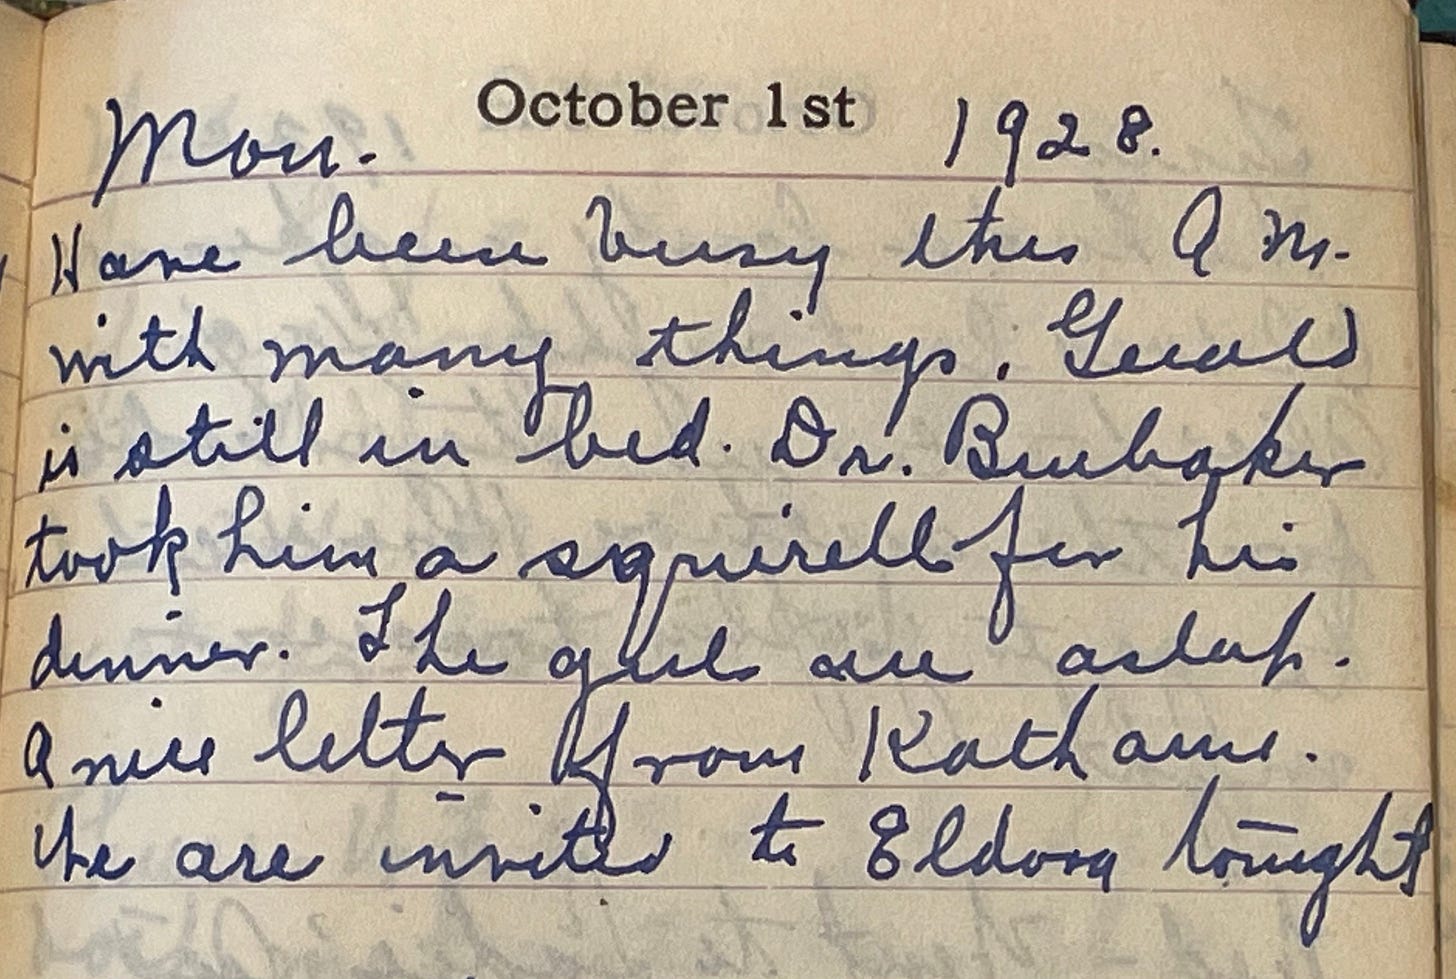 October 1st
Mon. 1928.
Have been busy this A M.
with many things. Gerald
is still in bed. Dr. Brubaker
took him a squirrell for his
dinner. The girls are asleep.
A nice letter from Kathanne.
We are invited to Eldora tonight